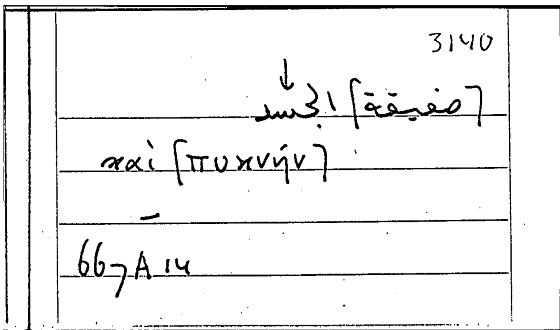 3140
↓
[صفيقة]
καὶ [πυκνήν]
–
667A14